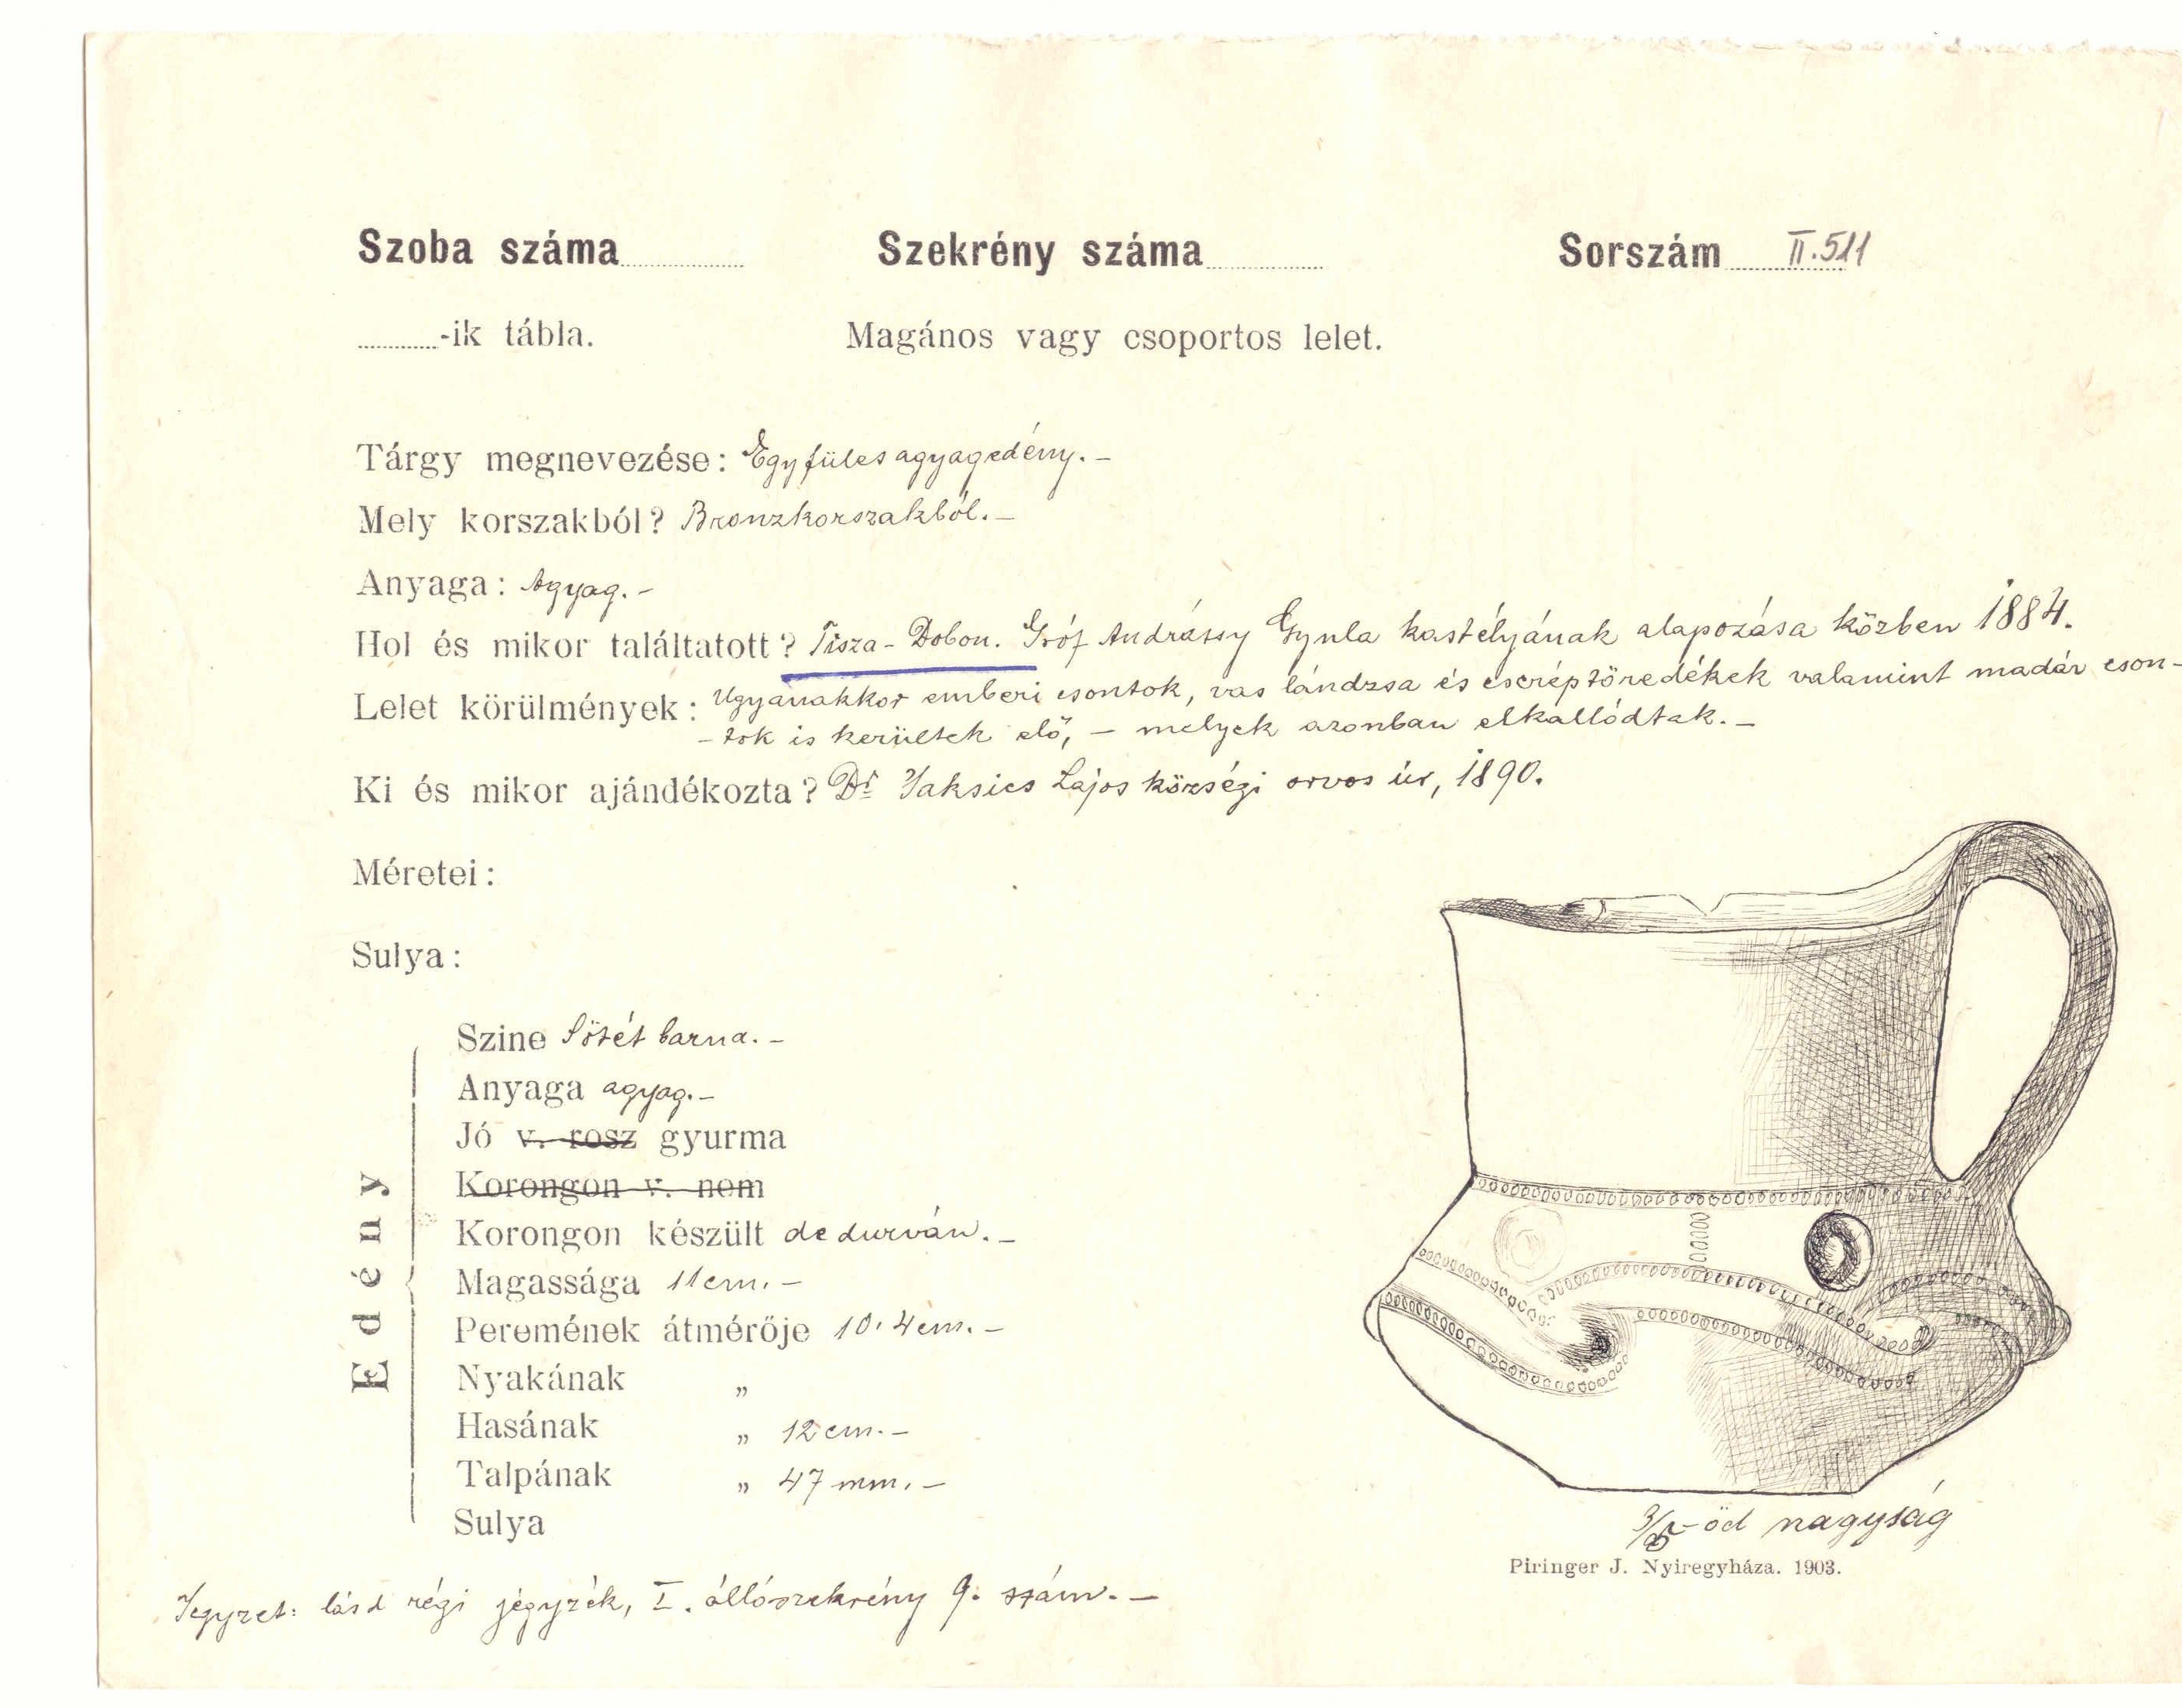 Szoba száma Szekrény száma Sorszám II. 511
-ik tábla. Magános vagy csoportos lelet.
Tárgy megnevezése: Egyfüles agyagedény. –
Mely korszakból? Bronzkorszakból. –
Anyaga: Agyag. –
Hol és mikor találtatott? Tisza-Dobon. Gróf Andrássy Gyula kastélyának alapozása közben 1884.
Lelet körülmények: Ugyanakkor emberi csontok, vas lándzsa és cseréptöredékek valamint madár cson-
-tok is kerültek elő, – melyek azonban elkallódtak. –
Ki és mikor ajándékozta? Dr Jaksics Lajos községi orvos úr, 1890.
Méretei:
Sulya:
Edény
Szine Sötét barna. –
Anyaga agyag. –
Jó v. rosz gyurma
Korongon v. nem
Korongon készült de durván. –
Magassága 11 cm. –
Peremének átmérője 10.4 cm. –
Nyakának „
Hasának „ 12 cm. –
Talpának „ 47 mm. –
Sulya
-öd nagyság
Piringer J. Nyiregyháza. 1903.
Jegyzet: lásd régi jegyzék, I. állószekrény 9. szám. –